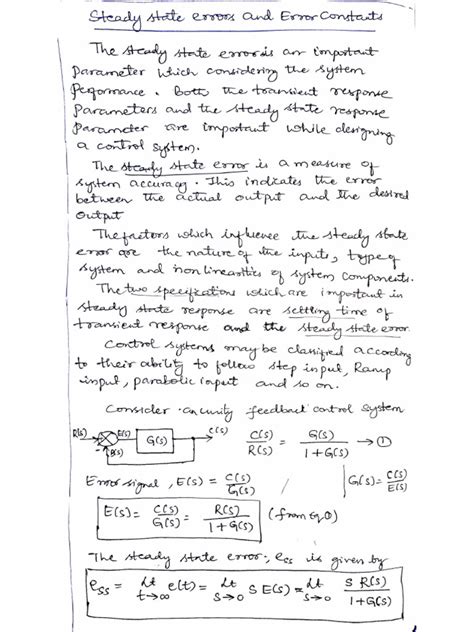 Steady state errors and Error Constants
The steady state error is an important
Parameter which considering the system
Performance. Both the transient response
Parameters and the steady state response
Parameter are important while designing
a control system.
The steady state error is a measure of
system accuracy. This indicates the error
between the actual output and the desired
output
The factors which influence the steady state
error are the nature of the inputs, type of
system and non linearities of system components.
The two specifications which are important in
steady state response are settling time of
transient response and the steady state error
Control systems may be classified according
to their ability to follow step input, Ramp
input, parabolic input and so on.
Consider an unity feedback control system
R(s) E(s) G(s) C(s)
B(s)
C(s)/R(s) = G(s)/1+G(s) → ①
Error signal, E(s) = C(s)/G(s)
G(s) = C(s)/E(s)
E(s) = C(s)/G(s) = R(s)/1+G(s) (from eq ①)
The steady state error, ess is given by
ess = Lt t→∞ e(t) = Lt s→0 S E(s) = Lt s→0 S R(s)/1+G(s)